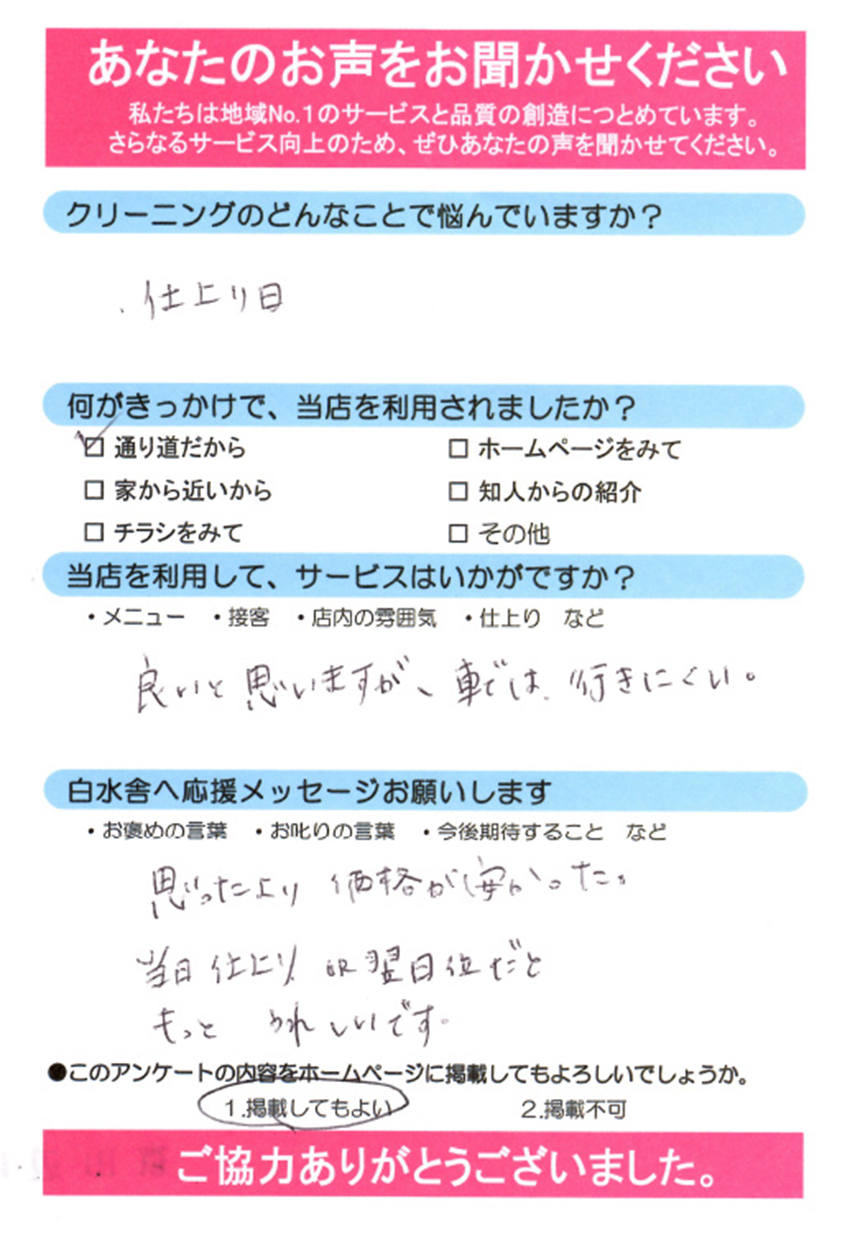 あなたのお声をお聞かせください
私たちは地域No.1のサービスと品質の創造につとめています。
さらなるサービス向上のため、ぜひあなたの声を聞かせてください。
クリーニングのどんなことで悩んでいますか？
・仕上り日
何がきっかけで、当店を利用されましたか？
☑ 通り道だから □ ホームページをみて
□ 家から近いから □ 知人からの紹介
□ チラシをみて □ その他
当店を利用して、サービスはいかがですか？
・メニュー ・接客 ・店内の雰囲気 ・仕上り など
良いと思いますが、車では行きにくい。
白水舎へ応援メッセージお願いします
・お褒めの言葉 ・お叱りの言葉 ・今後期待すること など
思ったより価格が安かった。
当日仕上り or 翌日位だと
もっと うれしいです。
●このアンケートの内容をホームページに掲載してもよろしいでしょうか。
1.掲載してもよい 2.掲載不可
ご協力ありがとうございました。